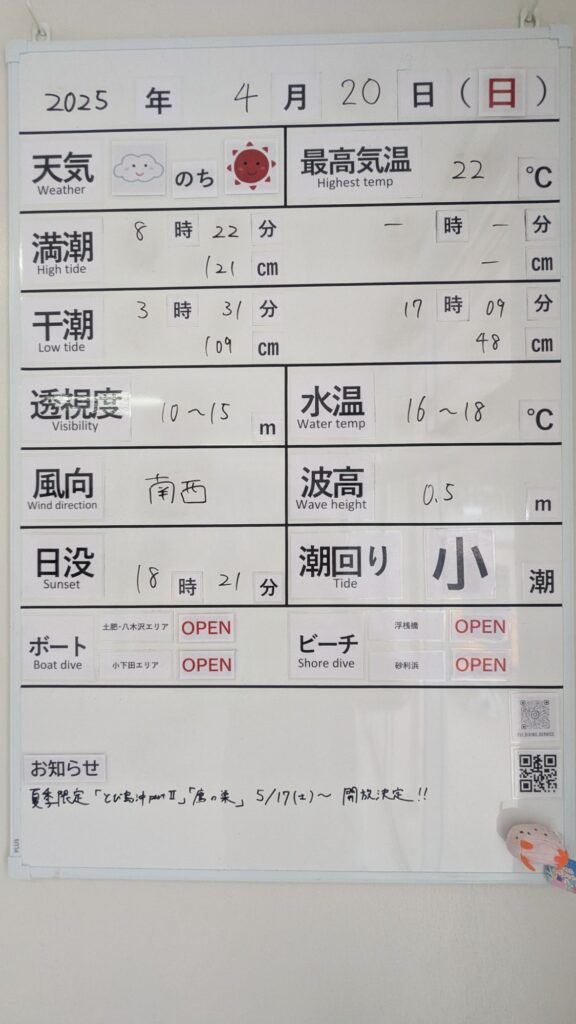 2025 年 4 月 20 日 (日)
天気 のち 最高気温 22 ℃
Weather Highest temp
満潮 8 時 22 分 ー 時 ー 分
High tide 121 cm ー cm
干潮 3 時 31 分 17 時 09 分
Low tide 109 cm 48 cm
透視度 10～15 m 水温 16～18 ℃
Visibility Water temp
風向 南西 波高 0.5 m
Wind direction Wave height
日没 18 時 21 分 潮回り 小 潮
Sunset Tide
ボート 土肥・八木沢エリア OPEN ビーチ 浮桟橋 OPEN
Boat dive 小下田エリア OPEN Shore dive 砂利浜 OPEN
お知らせ
夏季限定「とび島沖partⅡ」「の巣」 5/17(土)～ 開放決定!!
PLUS